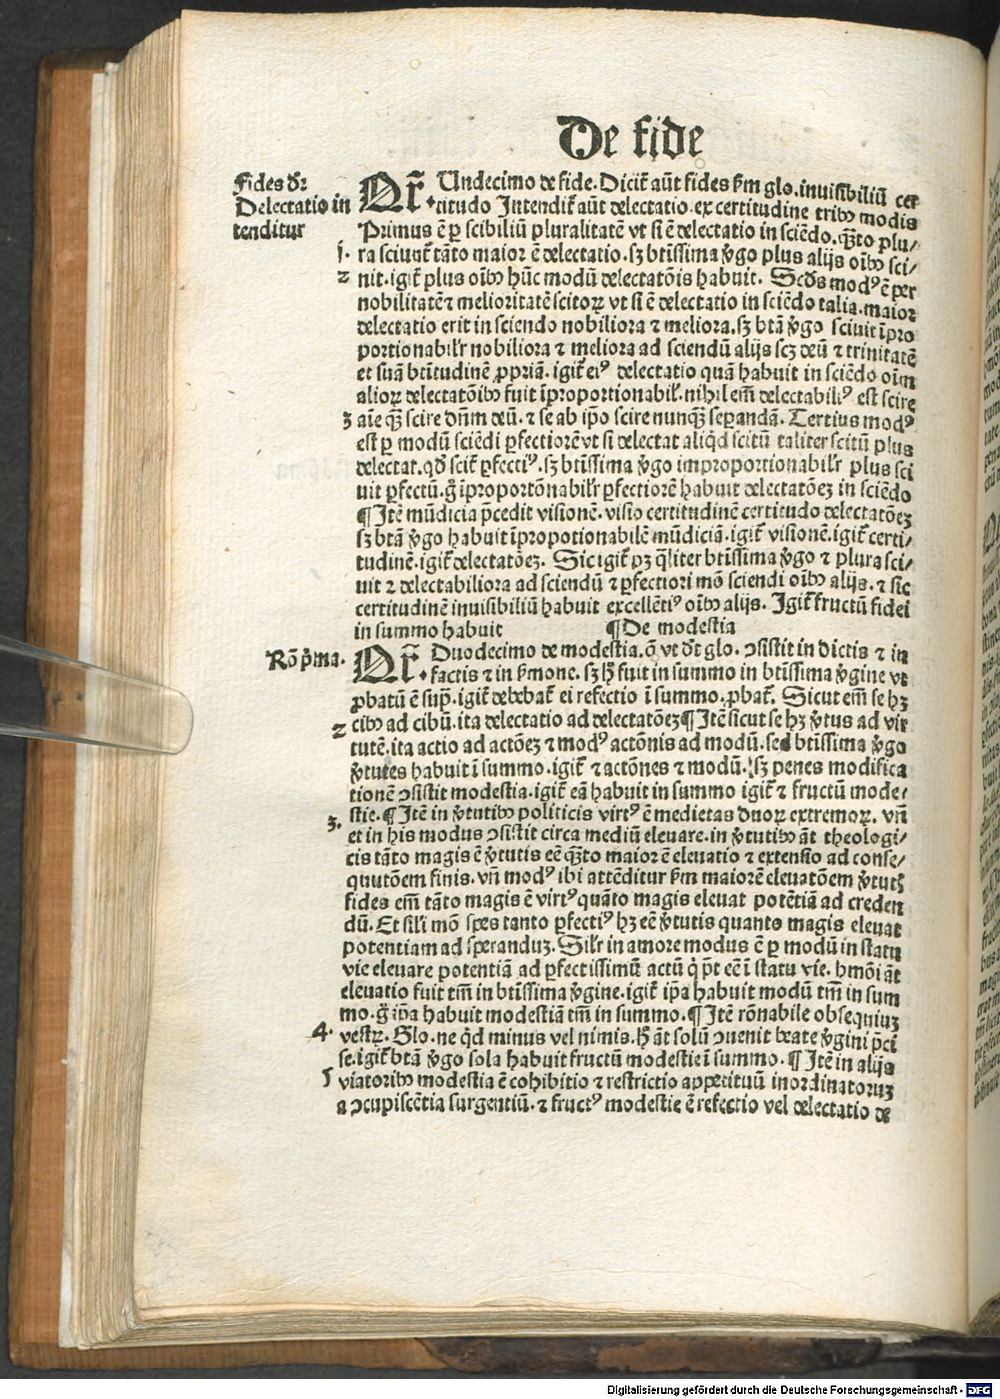 De fide
Fides dr̄:
Delectatio in
tenditur
Qr̄. Undecimo de fide. Dicit̄ aūt fides s̄m glo. inuisibiliū cer
titudo Intendit̄ aūt delectatio ex certitudine tribꝰ modis
1. Primus ē ꝑ scibiliū pluralitatē vt si ē delectatio in sciēdo. q̄̄to plu⸗
ra sciunt̄ tāto maior ē delectatio. sꝫ btīssima ꝟgo plus alijs oībꝰ sci⸗
2 nit. igit̄ plus oībꝰ hūc modū delectatōis habuit. Scd̄s modꝰ ē per
nobilitatē ⁊ melioritatē scitoꝝ vt si ē delectatio in sciēdo talia. maior
delectatio erit in sciendo nobiliora ⁊ meliora. sꝫ btā ꝟgo sciuit īpro
portionabilr̄ nobiliora ⁊ meliora ad sciendū alijs scꝫ deū ⁊ trinitatē
et suā btītudinē ꝓpriā. igit̄ eiꝰ delectatio quā habuit in sciēdo oīm
alioꝝ delectatōibꝰ fuit īproportionabil̄. nihil em̄ delectabiliꝰ est scire
3 aīe qꝫ̄ scire dn̄m deū. ⁊ se ab ip̄o scire nunqꝫ̄ seꝑandā. Tertius modꝰ
est ꝑ modū sciēdi ꝑfectiorē vt si delectat aliq̇d scitū taliter scitū plus
delectat. qd̄ scit̄ ꝑfectiꝰ. sꝫ btīssima ꝟgo improportionabilr̄ plus sci
uit ꝑfectū. g̊ īproportōnabilr̄ ꝑfectiorē habuit delectatōeꝫ in sciēdo
¶ Itē mūdicia p̄cedit visionē. visio certitudinē certitudo delectatōeꝫ
sꝫ btā ꝟgo habuit īpropotionabilē mūdiciā. igit̄ visionē. igit̄ certi⸗
tudinē. igit̄ delectatōeꝫ. Sic igit̄ pꝫ q̄liter btīssima ꝟgo ⁊ plura sci⸗
uit ⁊ delectabiliora ad sciendū ⁊ ꝑfectiori mō sciendi oībꝰ alijs. ⁊ sic
certitudinē inuisibiliū habuit excellētiꝰ oībꝰ alijs. Igit̄ fructū fidei
in summo habuit ¶ De modestia
Rō p̄ma. Qr̄. Duodecimo de modestia. q̄ vt dt̄ glo. ↄsistit in dictis ⁊ in
factis ⁊ in s̄mone. sꝫ h̄ fuit in summo in btīssima ꝟgine vt
ꝓbatū ē supͣ. igit̄ debebat̄ ei refectio ī summo. ꝓbat̄. Sicut em̄ se hꝫ
2 cibꝰ ad cibū. ita delectatio ad delectatōeꝫ ¶ Itē sicut se hꝫ ꝟtus ad vir
tutē. ita actio ad actōeꝫ ⁊ modꝰ actōnis ad modū. sed btīssima ꝟgo
ꝟtutes habuit ī summo. igit̄ ⁊ actōnes ⁊ modū. sꝫ penes modifica
tionē ↄsistit modestia. igit̄ eā habuit in summo igit̄ ⁊ fructū mode⸗
3. stie. ¶ Itē in ꝟtutibꝰ politicis virtꝰ ē medietas duoꝝ extremoꝝ. vn̄
et in his modus ↄsistit circa mediū eleuare. in ꝟtutibꝰ āt theologi⸗
cis tāto magis ē ꝟtutis eē q̄̄to maior ē eleuatio ⁊ extensio ad conse⸗
quutōem finis. vn̄ modꝰ ibi attēditur s̄m maiorē eleuatōem ꝟtutꝭ
fides em̄ tāto magis ē virtꝰ quāto magis eleuat potētiā ad creden
dū. Et sil̄i mō spes tanto ꝑfectiꝰ hꝫ eē ꝟtutis quanto magis eleuat
potentiam ad speranduꝫ. Silr̄ in amore modus ē ꝑ modū in statu
vie eleuare potentiā ad ꝑfectissimū actū q̇ p̄t eē ī statu vie. hmōi āt
eleuatio fuit tm̄ in btīssima ꝟgine. igit̄ ip̄a habuit modū tm̄ in sum
mo. g̊ ip̄a habuit modestiā tm̄ in summo. ¶ Itē rōnabile obsequiuꝫ
4. vestꝝ. Glo. ne q̇d minus vel nimis. h̄ āt solū ↄuenit beate ꝟgini p̄ci
se. igit̄ btā ꝟgo sola habuit fructū modestie ī summo. ¶ Itē in alijs
5 viatoribꝰ modestia ē cohibitio ⁊ restrictio appetituū inordinatoruꝫ
a ↄcupiscētia surgentiū. ⁊ fructꝰ modestie ē refectio vel delectatio de
Digitalisierung gefördert durch die Deutsche Forschungsgemeinschaft - DFG